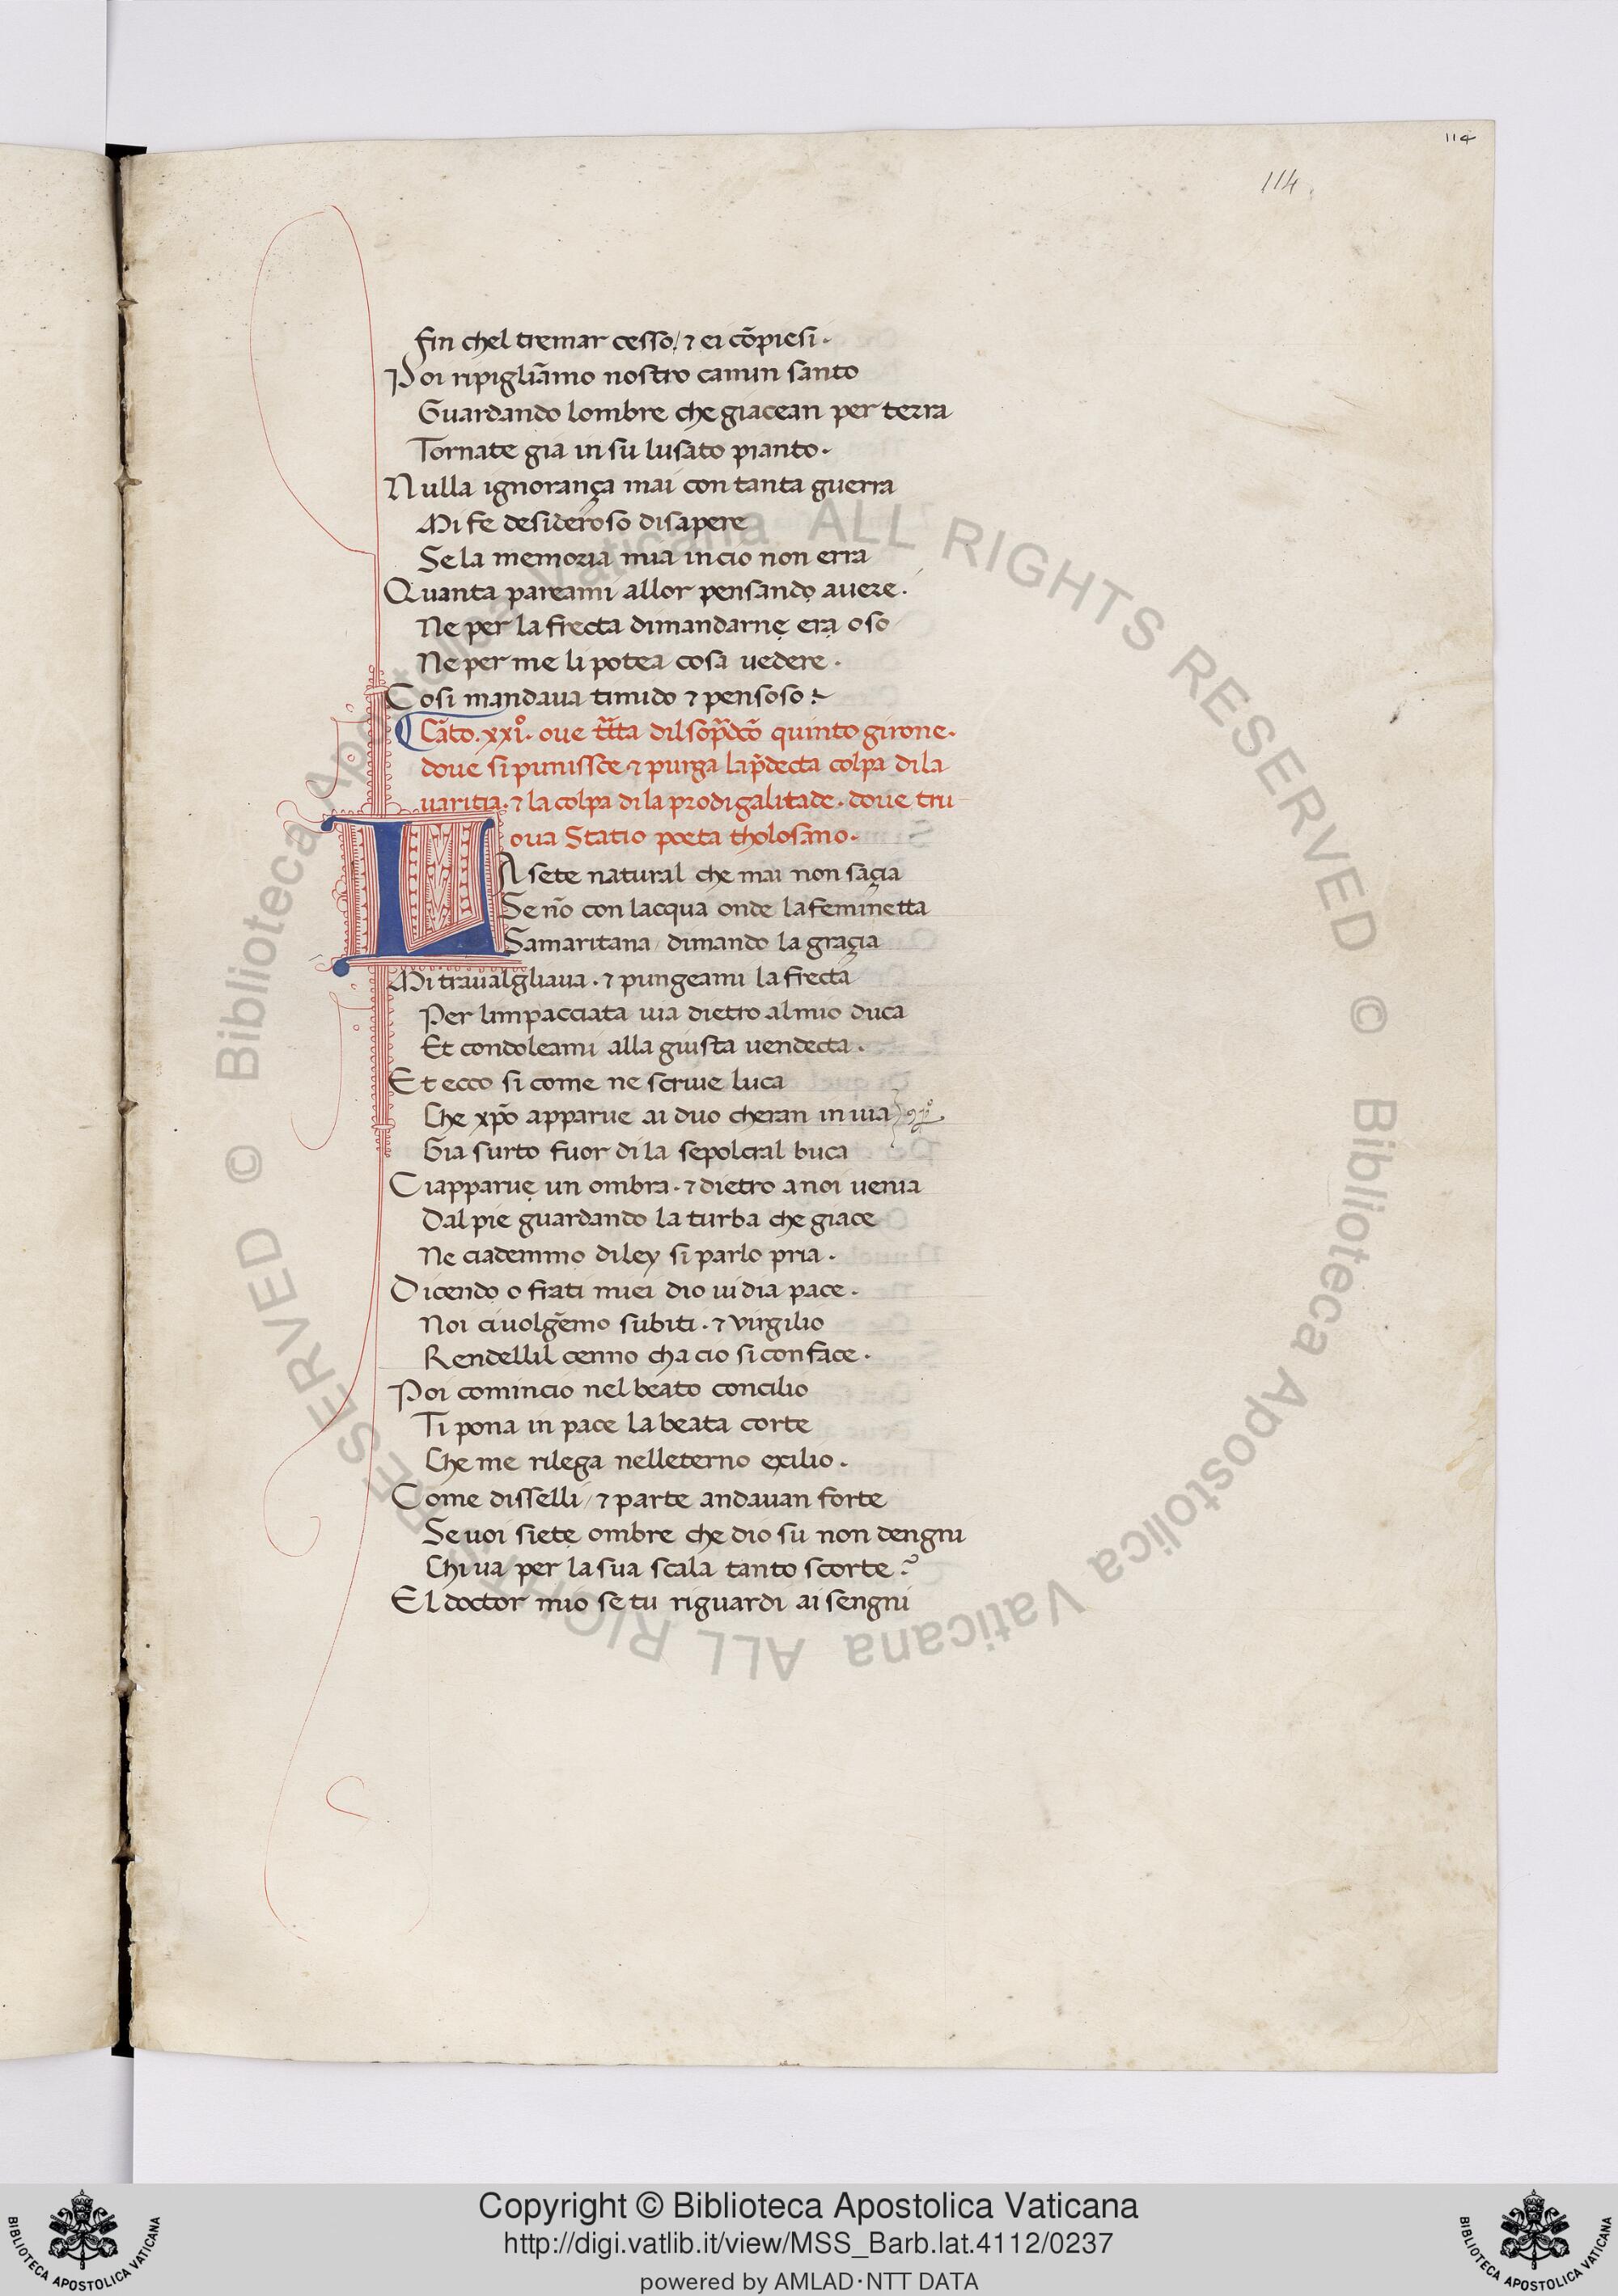 114
114.
fin chel tremar cesso / ⁊ ei cõpiesi.
Poi ripigliãmo nostro camin santo
Guardando lombre che giacean per terra
Tornate gia in su lusato pianto.
Nulla ignorança mai con tanta guerra
Mi fe desideroso disapere
Se la memoria mia in cio non erra
Quanta pareami allor pensandọ auere.
Ne per la frecta dimandarnẹ erạ oso
Ne per me li potea cosa uedere.
Cosi mandaua timido ⁊ pensoso
Cãto. xxiº. oue tr̃ta dil sop̃dcõ quinto girone.
doue si punissce ⁊ purga la p̃decta colpa di la
uaritia. ⁊ la colpa di la prodigalitade. doue tru
oua Statio poeta tholosano.
LA sete natural che mai non saçia
Se nõ con lacqua onde la feminetta
Samaritana / dimando la graçia
Mi traualgliaua. ⁊ pungeami la frecta
Per limpacciata uia dietro al mio duca
Et condoleami alla giusta uendecta.
Et ecco si come ne scriue luca
Che xp̃o apparue ai duo cheran in uia
Gia surto fuor di la sepolcral buca
Ci apparuẹ un ombra. ⁊ dietro a noi uenia
Dal pie guardando la turba che giace
Ne ciademmo di ley si parlo pria.
Dicendọ o frati miei dio ui dia pace.
Noi ci uolgẽmo subiti. ⁊ virgilio
Rendellil cenno cha cio si conface.
Poi comincio nel beato concilio
Ti pona in pace la beata corte
Che me rilega nelleterno exilio.
Come disselli / ⁊ parte andauan forte
Se uoi sietẹ ombre che dio su non dengni
Chi ua per la sua scala tanto scorte?
El doctor mio se tu riguardi ai sengni
© Biblioteca Apostolica Vaticana ALL RIGHTS RESERVED
© Biblioteca Apostolica Vaticana ALL RIGHTS RESERVED
Copyright © Biblioteca Apostolica Vaticana
http://digi.vatlib.it/view/MSS_Barb.lat.4112/0237
powered by AMLAD·NTT DATA
BIBLIOTECA APOSTOLICA VATICANA
BIBLIOTECA APOSTOLICA VATICANA